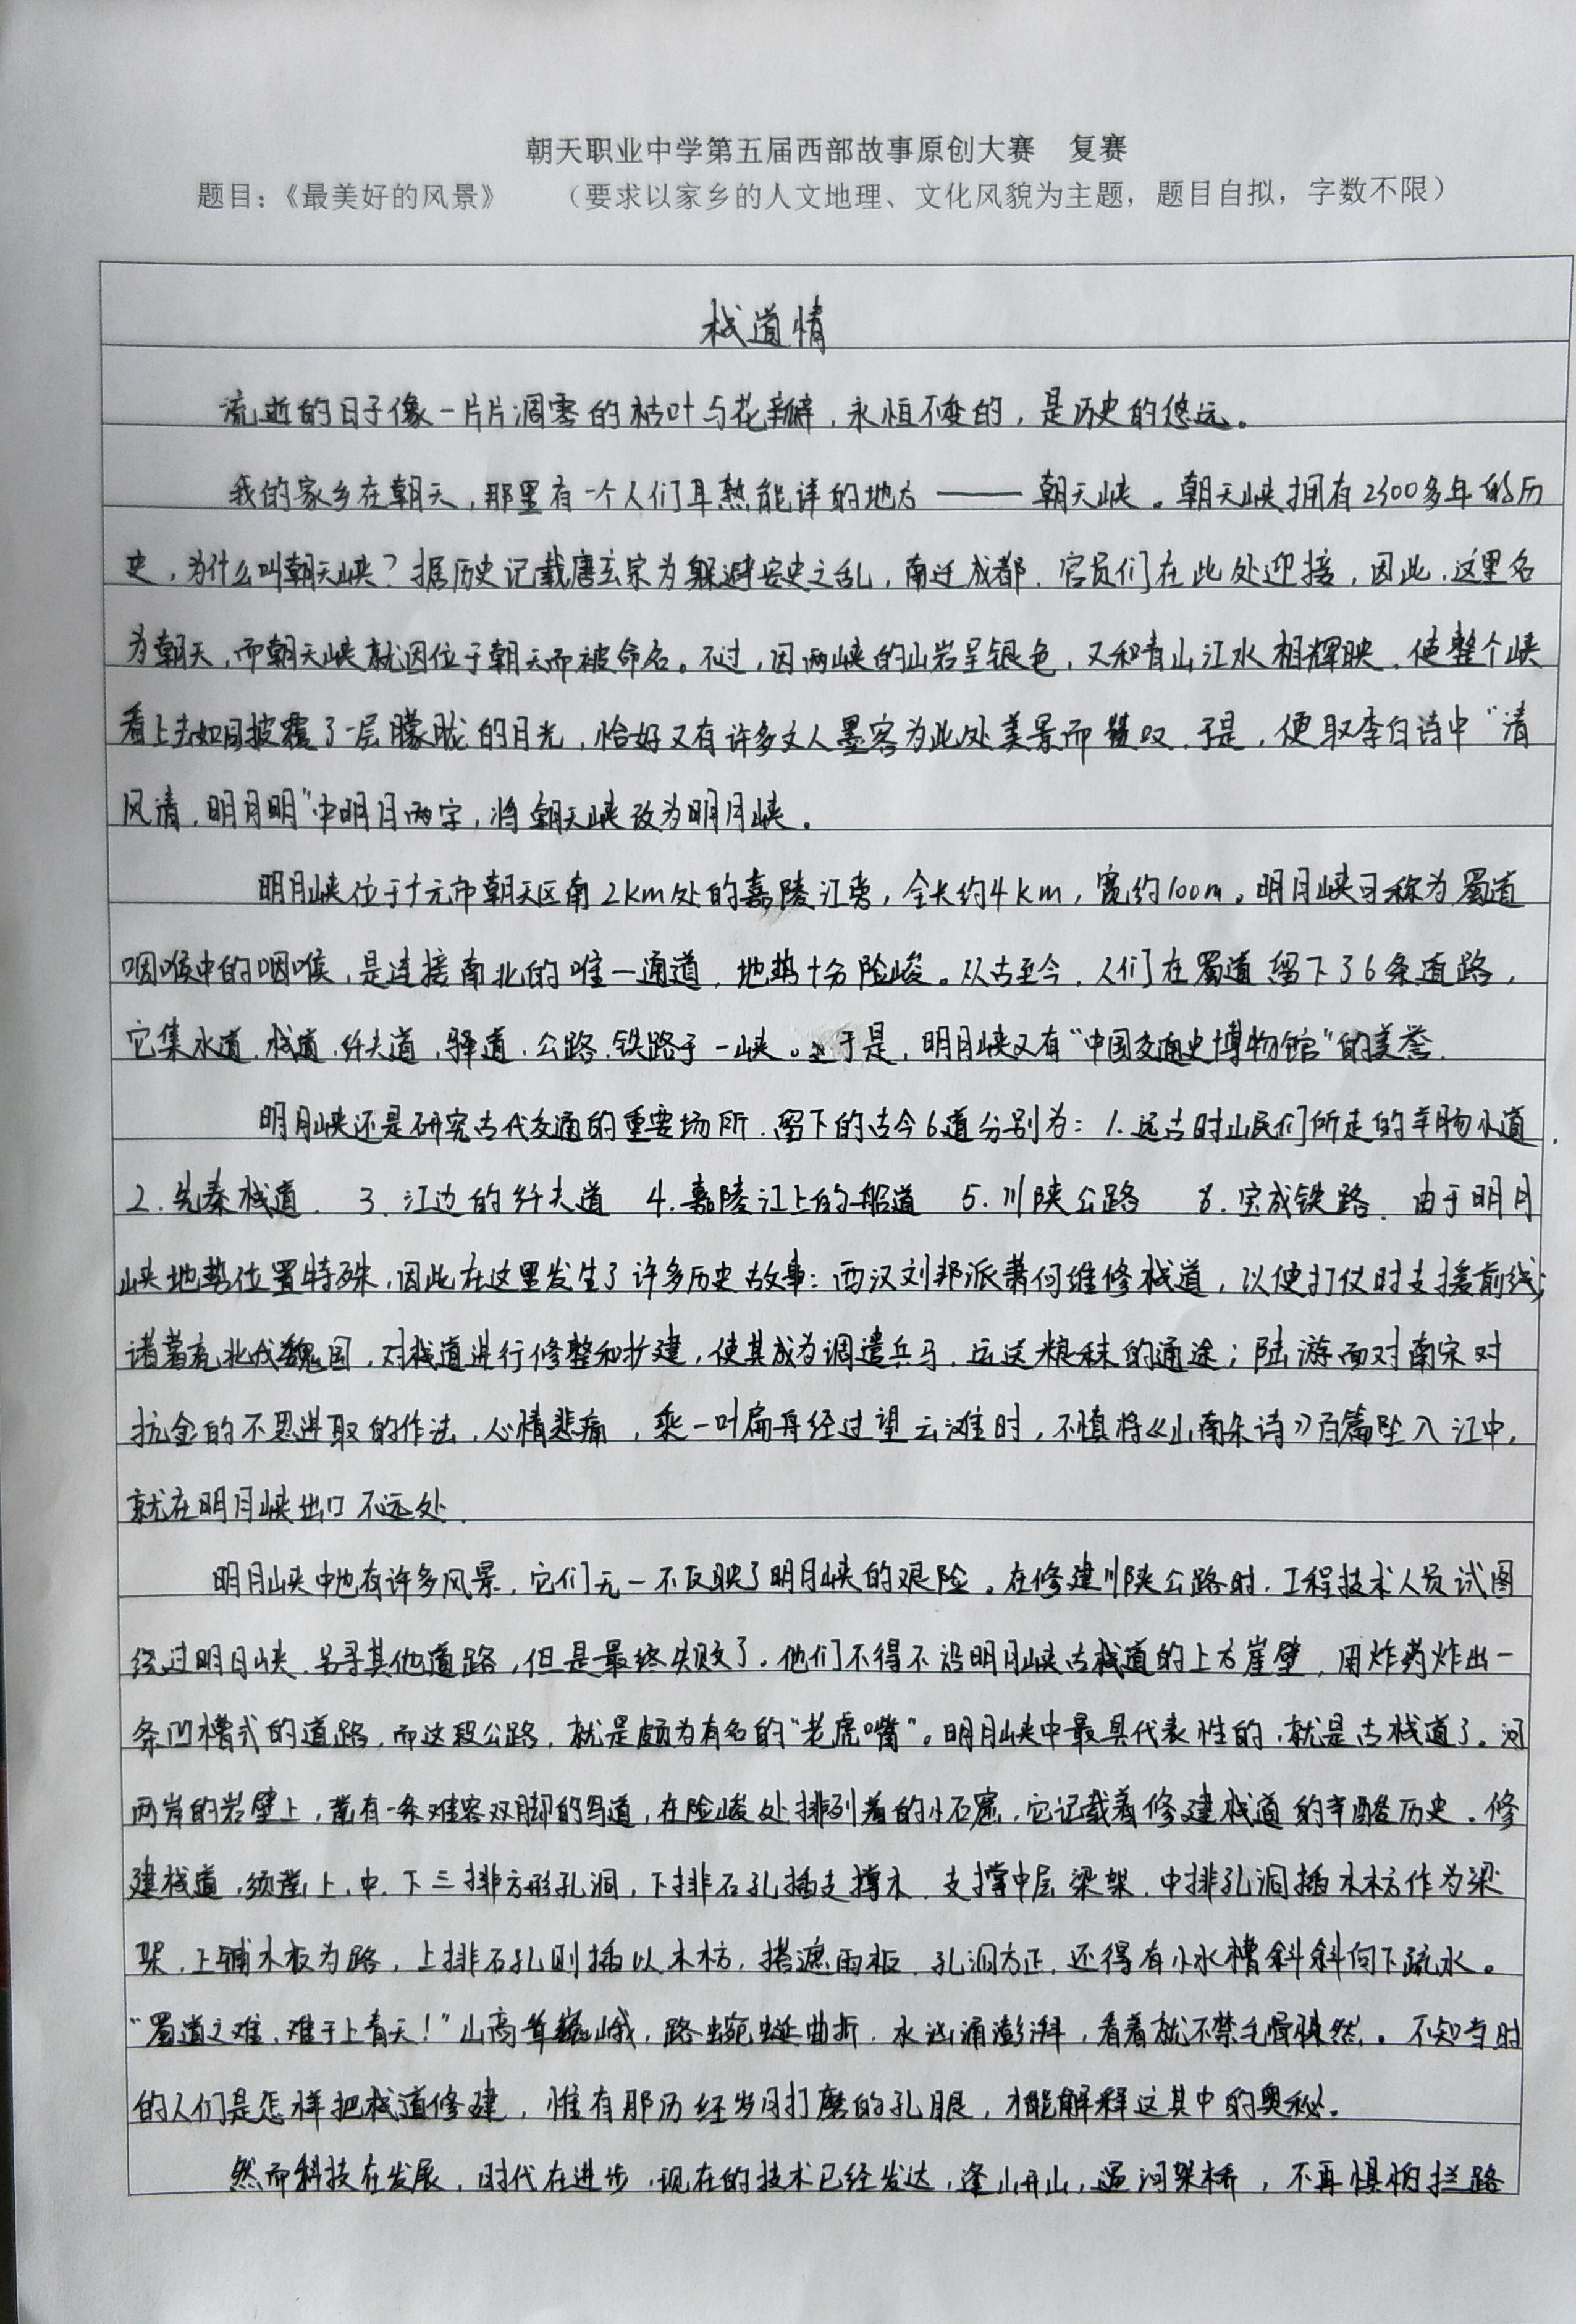 朝天职业中学第五届西部故事原创大赛 复赛
题目：《最美好的风景》 （要求以家乡的人文地理、文化风貌为主题，题目自拟，字数不限）
栈道情
流逝的日子像一片片凋零的枯叶与花瓣，永恒不变的，是历史的悠远。
我的家乡在朝天，那里有一个人们耳熟能详的地方——朝天峡。朝天峡拥有2300多年的历
史，为什么叫朝天峡？据历史记载唐玄宗为躲避安史之乱，南迁成都，官员们在此处迎接，因此，这里名
为朝天，而朝天峡就因位于朝天而被命名。不过，因两峡的山岩呈银色，又和青山江水相辉映，使整个峡
看上去如同披覆了一层朦胧的月光，恰好又有许多文人墨客为此处美景而赞叹，于是，便取李白诗中“清
风清，明月明”中明月两字，将朝天峡改为明月峡。
明月峡位于广元市朝天区南2km处的嘉陵江旁，全长约4km，宽约100m。明月峡可称为蜀道
咽喉中的咽喉，是连接南北的唯一通道，地势十分险峻。从古至今，人们在蜀道留下了6条道路，
它集水道、栈道、纤夫道、驿道、公路、铁路于一峡。于是，明月峡又有“中国交通史博物馆”的美誉。
明月峡还是研究古代交通的重要场所，留下的古今6道分别为：1.远古时山民们所走的羊肠小道，
2.先秦栈道 3.江边的纤夫道 4.嘉陵江上的船道 5.川陕公路 6.宝成铁路。由于明月
峡地势位置特殊，因此在这里发生了许多历史故事：西汉刘邦派萧何维修栈道，以便打仗时支援前线；
诸葛亮北伐魏国，对栈道进行修整和扩建，使其成为调遣兵马、运送粮秣的通途；陆游面对南宋对
抗金的不思进取的作法，心情悲痛，乘一叶扁舟经过望云滩时，不慎将《山南杂诗》百篇坠入江中，
就在明月峡出口不远处。
明月峡中也有许多风景，它们无一不反映了明月峡的艰险。在修建川陕公路时，工程技术人员试图
绕过明月峡，另寻其他道路，但是最终失败了。他们不得不沿明月峡古栈道的上方崖壁，用炸药炸出一
条凹槽式的道路，而这段公路，就是颇为有名的“老虎嘴”。明月峡中最具代表性的，就是古栈道了。河
两岸的岩壁上，凿有一条难容双脚的鸟道，在险峻处排列着的小石窟，它记载着修建栈道的辛酸历史。修
建栈道，须凿上、中、下三排方形孔洞，下排石孔插支撑木，支撑中层梁架，中排孔洞插木枋作为梁
架，上铺木板为路，上排石孔则插以木枋，搭遮雨板，孔洞方正，还得有小水槽斜斜向下疏水。
“蜀道之难，难于上青天！”山高耸巍峨，路蜿蜒曲折，水汹涌澎湃，看着就不禁毛骨悚然。不知当时
的人们是怎样把栈道修建，惟有那历经岁月打磨的孔眼，才能解释这其中的奥秘。
然而科技在发展，时代在进步，现在的技术已经发达，逢山开山，遇河架桥，不再惧怕拦路